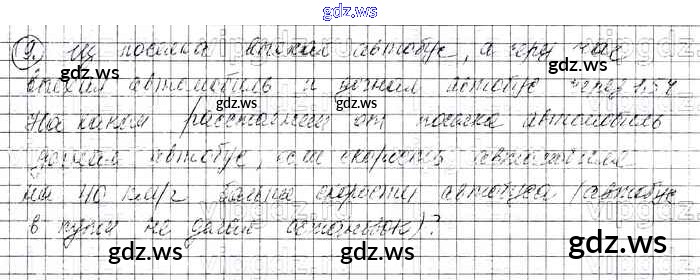 gdz.ws
9. Из поселка выехал автобус, а через час
выехал автомобиль и догнал автобус через 1,5 ч
gdz.ws gdz.ws
На каком расстоянии от поселка автомобиль
догнал автобус, если скорость автомобиля
gdz.ws gdz.ws
на 40 км/ч больше скорости автобуса (автобус
в пути не делал остановок)?
gdz.ws gdz.ws
gdz.ws